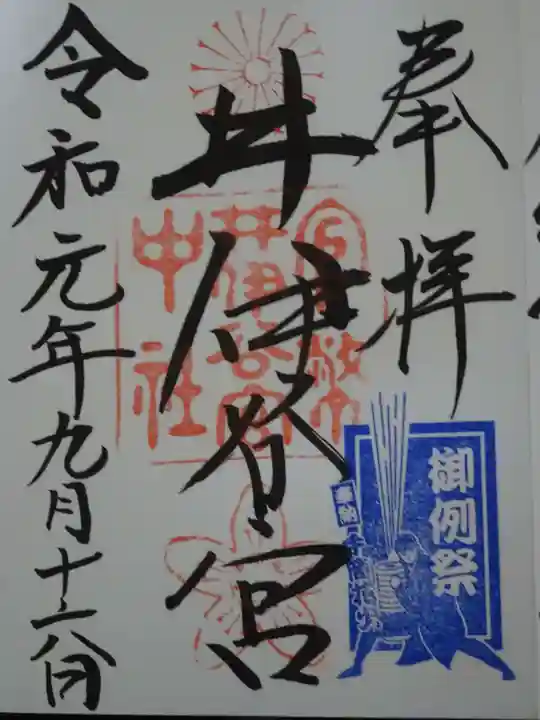 奉拝
井伊谷宮
官幣
井伊谷宮
中社
御例祭
奉納
令和元年九月十二日